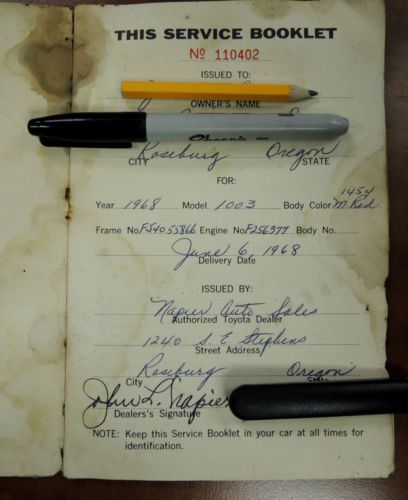 THIS SERVICE BOOKLET
Nº 110402
ISSUED TO:
OWNER'S NAME
Roseburg Oregon
CITY STATE
FOR:
1454
Year 1968 Model 1003 Body Color M. Red
Frame No. FJ4055866 Engine No. F256377 Body No.
June 6, 1968
Delivery Date
ISSUED BY:
Napier Auto Sales
Authorized Toyota Dealer
1240 S. E. Stephens
Street Address
Roseburg Oregon
City
John L. Napier
Dealers's Signature
NOTE: Keep this Service Booklet in your car at all times for
identification.